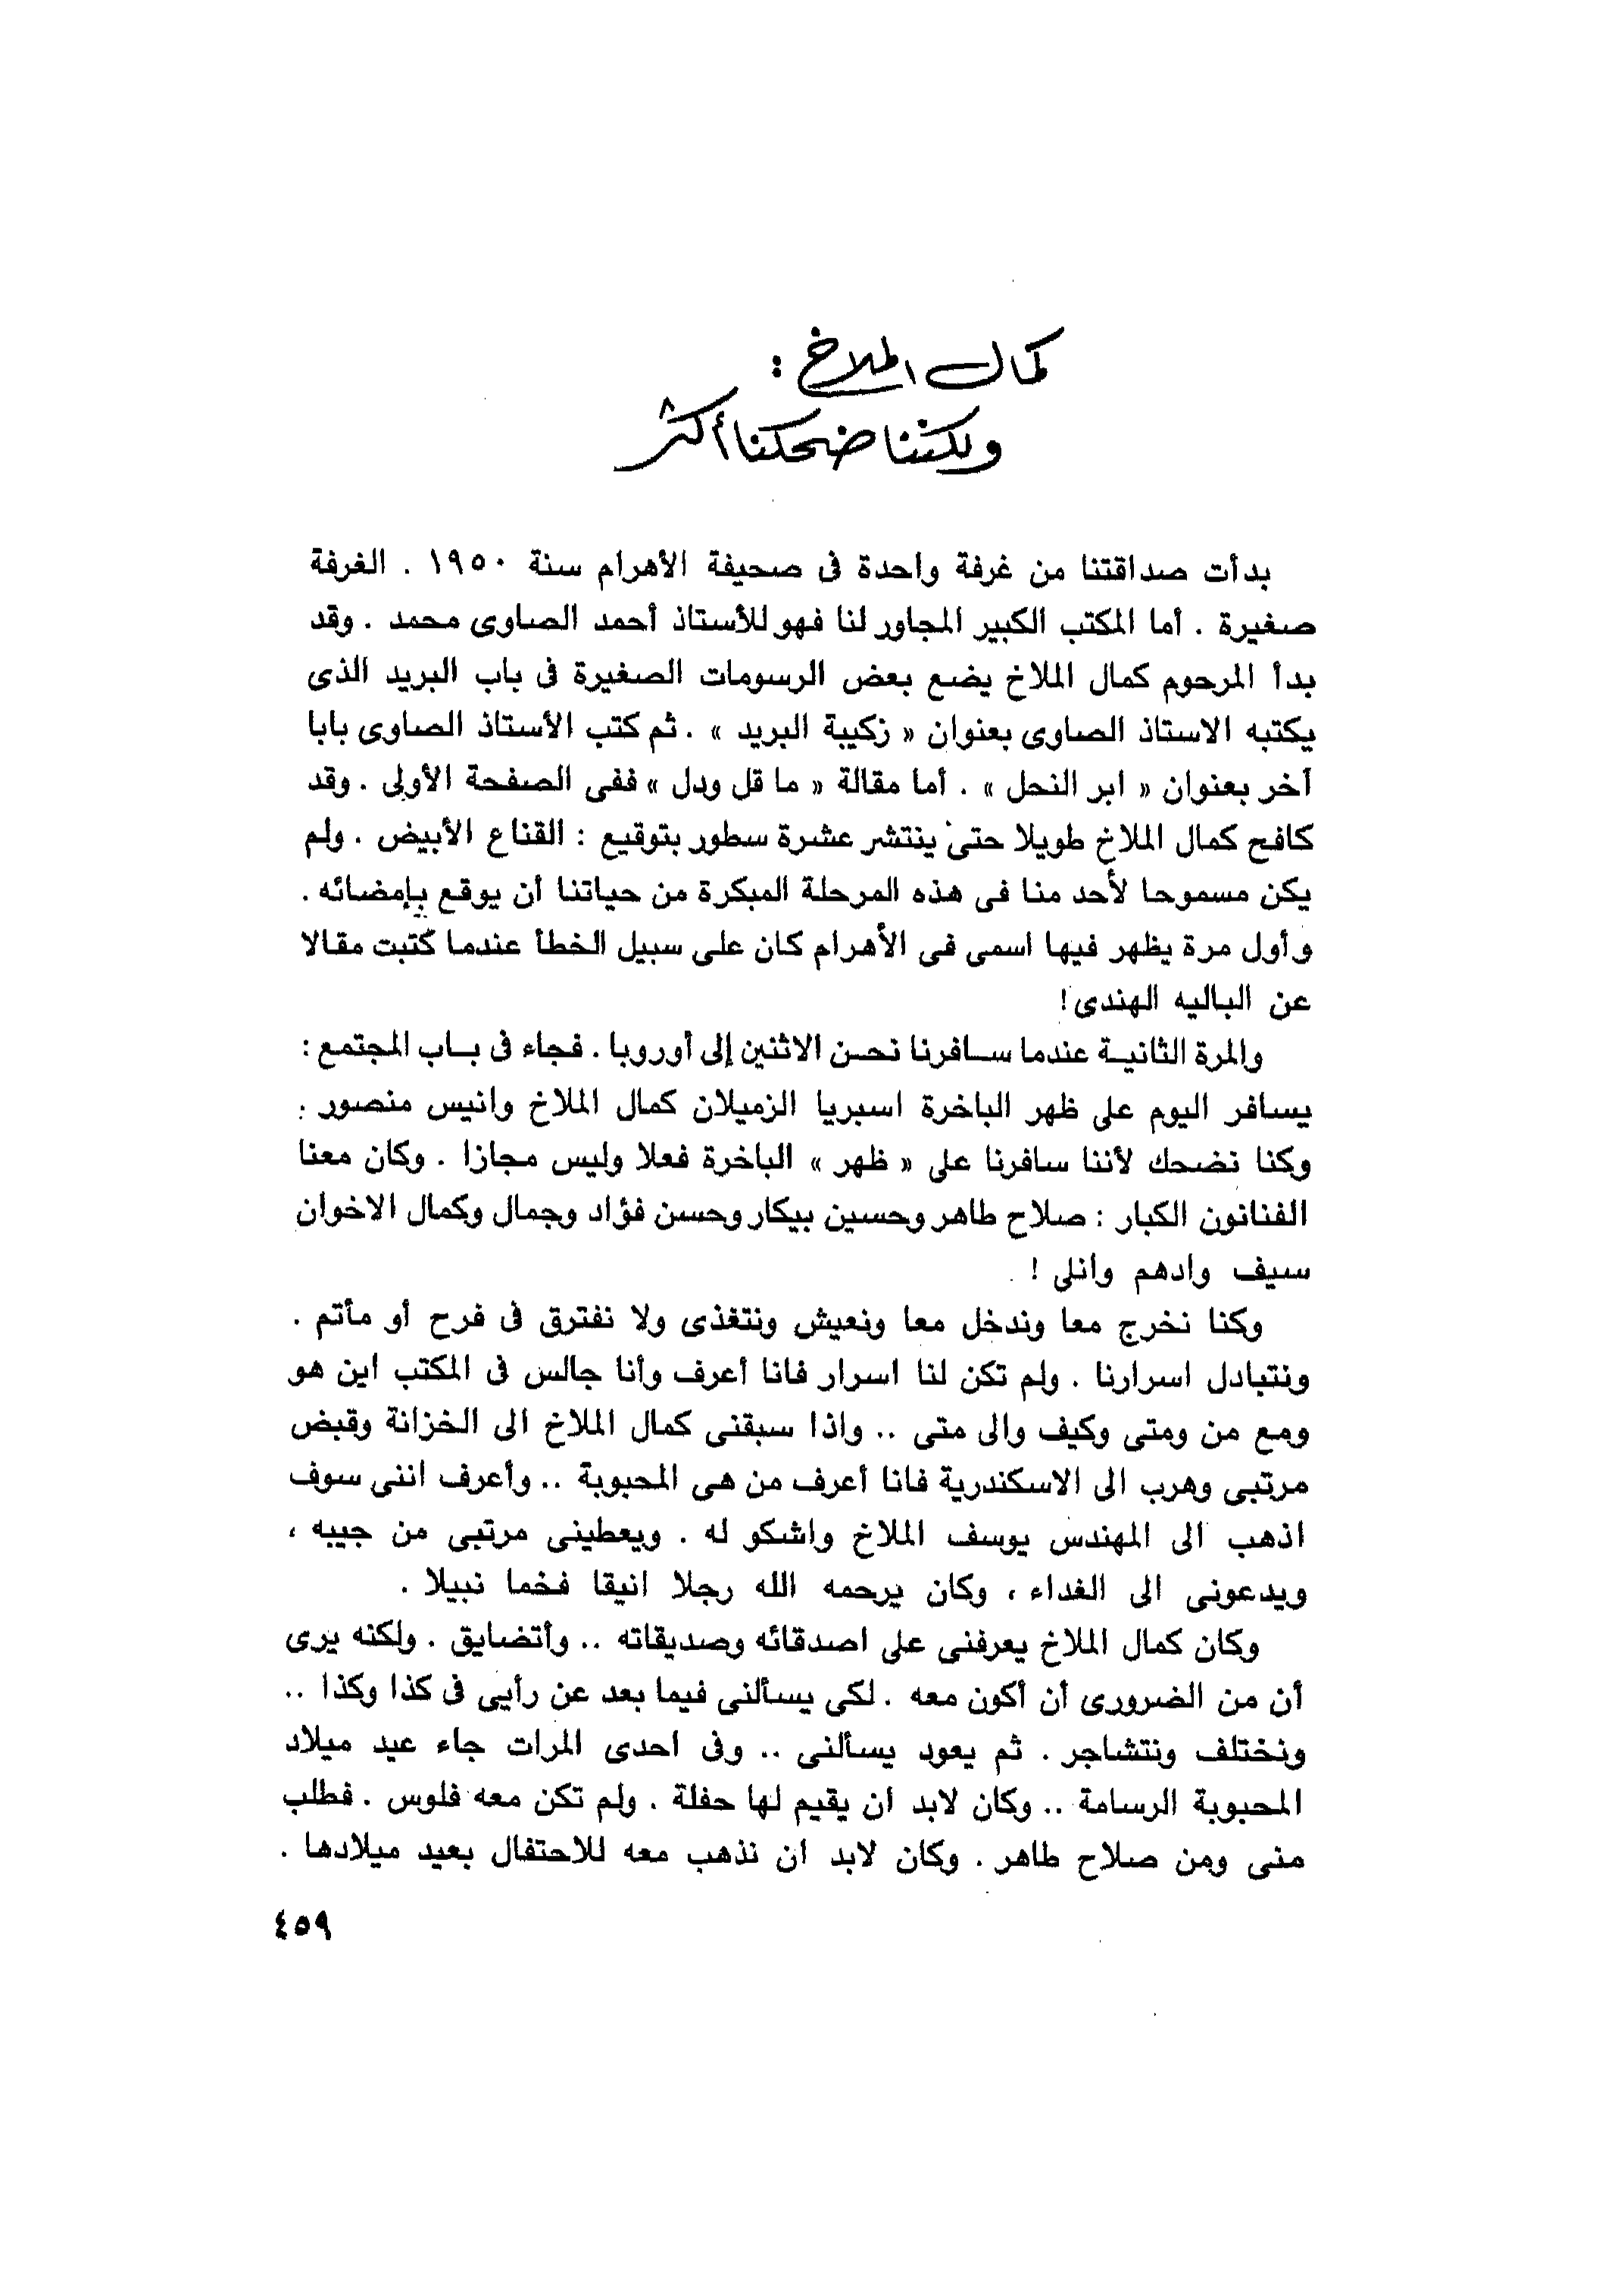 كمال الملاخ :
ولكننا ضحكنا أكثر
بدأت صداقتنا من غرفة واحدة فى صحيفة الأهرام سنة ١٩٥٠ . الغرفة
صغيرة . أما المكتب الكبير المجاور لنا فهو للأستاذ أحمد الصاوى محمد . وقد
بدأ المرحوم كمال الملاخ يضع بعض الرسومات الصغيرة فى باب البريد الذى
يكتبه الاستاذ الصاوى بعنوان « زكيبة البريد » . ثم كتب الأستاذ الصاوى بابا
آخر بعنوان « ابر النحل » . أما مقالة « ما قل ودل » ففى الصفحة الأولى . وقد
كافح كمال الملاخ طويلا حتى ينتشر عشرة سطور بتوقيع : القناع الأبيض . ولم
يكن مسموحا لأحد منا فى هذه المرحلة المبكرة من حياتنا أن يوقع بإمضائه .
وأول مرة يظهر فيها اسمى فى الأهرام كان على سبيل الخطأ عندما كتبت مقالا
عن الباليه الهندى !
والمرة الثانية عندما سافرنا نحن الاثنين إلى أوروبا . فجاء فى باب المجتمع :
يسافر اليوم على ظهر الباخرة اسبريا الزميلان كمال الملاخ وانيس منصور .
وكنا نضحك لأننا سافرنا على « ظهر » الباخرة فعلا وليس مجازا . وكان معنا
الفنانون الكبار : صلاح طاهر وحسين بيكار وحسن فؤاد وجمال وكمال الاخوان
سيف وادهم وانلى !
وكنا نخرج معا وندخل معا ونعيش ونتغذى ولا نفترق فى فرح أو مأتم .
ونتبادل اسرارنا . ولم تكن لنا اسرار فانا أعرف وأنا جالس فى المكتب اين هو
ومع من ومتى وكيف والى متى .. واذا سبقنى كمال الملاخ الى الخزانة وقبض
مرتبى وهرب الى الاسكندرية فانا أعرف من هى المحبوبة .. وأعرف اننى سوف
اذهب الى المهندس يوسف الملاخ واشكو له . ويعطينى مرتبى من جيبه ،
ويدعونى الى الغداء ، وكان يرحمه الله رجلا انيقا فخما نبيلا .
وكان كمال الملاخ يعرفنى على اصدقائه وصديقاته .. وأتضايق . ولكنه يرى
أن من الضرورى أن أكون معه . لكى يسألنى فيما بعد عن رأيى فى كذا وكذا ..
ونختلف ونتشاجر . ثم يعود يسألنى .. وفى احدى المرات جاء عيد ميلاد
المحبوبة الرسامة .. وكان لابد ان يقيم لها حفلة . ولم تكن معه فلوس . فطلب
منى ومن صلاح طاهر . وكان لابد ان نذهب معه للاحتفال بعيد ميلادها .
٤٥٩